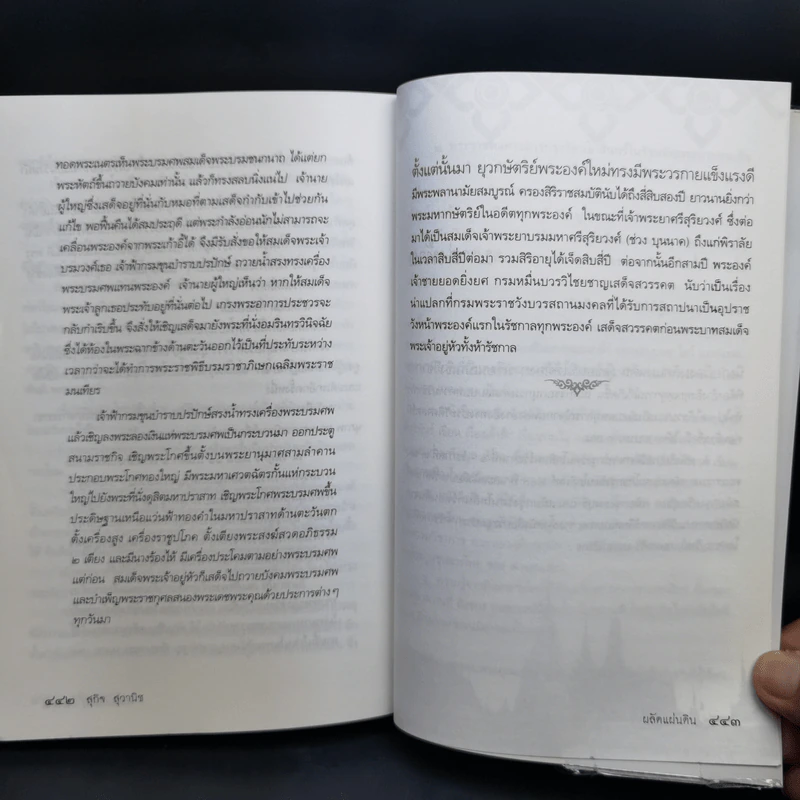 ทอดพระเนตรเห็นพระบรมศพสมเด็จพระบรมชนกนาถ ได้แต่ยก
พระหัตถ์ขึ้นถวายบังคมเท่านั้น แล้วก็ทรงสลบนิ่งแน่ไป เจ้านาย
ผู้ใหญ่ซึ่งเสด็จอยู่ที่นั่นกับหมอที่ตามเสด็จกำกับเข้าไปช่วยกัน
แก้ไข พอฟื้นคืนได้สมประฤดี แต่พระกำลังอ่อนนักไม่สามารถจะ
เคลื่อนพระองค์จากพระเก้าอี้ได้ จึงมีรับสั่งขอให้สมเด็จพระเจ้า
บรมวงศ์เธอ เจ้าฟ้ากรมขุนบำราบปรปักษ์ ถวายน้ำสรงทรงเครื่อง
พระบรมศพแทนพระองค์ เจ้านายผู้ใหญ่เห็นว่า หากให้สมเด็จ
พระเจ้าลูกเธอประทับอยู่ที่นั่นต่อไป เกรงพระอาการประชวรจะ
กลับกำเริบขึ้น จึงสั่งให้เชิญเสด็จมายังพระที่นั่งอมรินทรวินิจฉัย
ซึ่งใช้ห้องในพระฉากข้างด้านตะวันออกไว้เป็นที่ประทับระหว่าง
เวลากว่าจะได้ทำการพระราชพิธีบรมราชาภิเษกเฉลิมพระราช
มนเทียร
เจ้าฟ้ากรมขุนบำราบปรปักษ์สรงน้ำทรงเครื่องพระบรมศพ
แล้วเชิญลงพระลองเงินแห่พระบรมศพเป็นกระบวนมา ออกประตู
สนามราชกิจ เชิญพระโกศขึ้นตั้งบนพระยานุมาศสามลำคาน
ประกอบพระโกศทองใหญ่ มีพระมหาเศวตฉัตรกั้นแห่กระบวน
ใหญ่ไปยังพระที่นั่งดุสิตมหาปราสาท เชิญพระโกศพระบรมศพขึ้น
ประดิษฐานเหนือแว่นฟ้าทองคำในมหาปราสาทด้านตะวันตก
ตั้งเครื่องสูง เครื่องราชูปโภค ตั้งเตียงพระสงฆ์สวดอภิธรรม
๒ เตียง และมีนางร้องไห้ มีเครื่องประโคมตามอย่างพระบรมศพ
แต่ก่อน สมเด็จพระเจ้าอยู่หัวก็เสด็จไปถวายบังคมพระบรมศพ
และบำเพ็ญพระราชกุศลสนองพระเดชพระคุณด้วยประการต่างๆ
ทุกวันมา
๔๔๒ สุกิจ สุวานิช
ตั้งแต่นั้นมา ยุวกษัตริย์พระองค์ใหม่ทรงมีพระวรกายแข็งแรงดี
มีพระพลานามัยสมบูรณ์ ครองสิริราชสมบัตินับได้ถึงสี่สิบสองปี ยาวนานยิ่งกว่า
พระมหากษัตริย์ในอดีตทุกพระองค์ ในขณะที่เจ้าพระยาศรีสุริยวงศ์ ซึ่งต่อ
มาได้เป็นสมเด็จเจ้าพระยาบรมมหาศรีสุริยวงศ์ (ช่วง บุนนาค) ถึงแก่พิราลัย
ในเวลาสิบสี่ปีต่อมา รวมสิริอายุได้เจ็ดสิบสี่ปี ต่อจากนั้นอีกสามปี พระองค์
เจ้าชายยอดยิ่งยศ กรมหมื่นบวรวิไชยชาญเสด็จสวรรคต นับว่าเป็นเรื่อง
น่าแปลกที่กรมพระราชวังบวรสถานมงคลที่ได้รับการสถาปนาเป็นอุปราช
วังหน้าพระองค์แรกในรัชกาลทุกพระองค์ เสด็จสวรรคตก่อนพระบาทสมเด็จ
พระเจ้าอยู่หัวทั้งห้ารัชกาล
ผลัดแผ่นดิน ๔๔๓